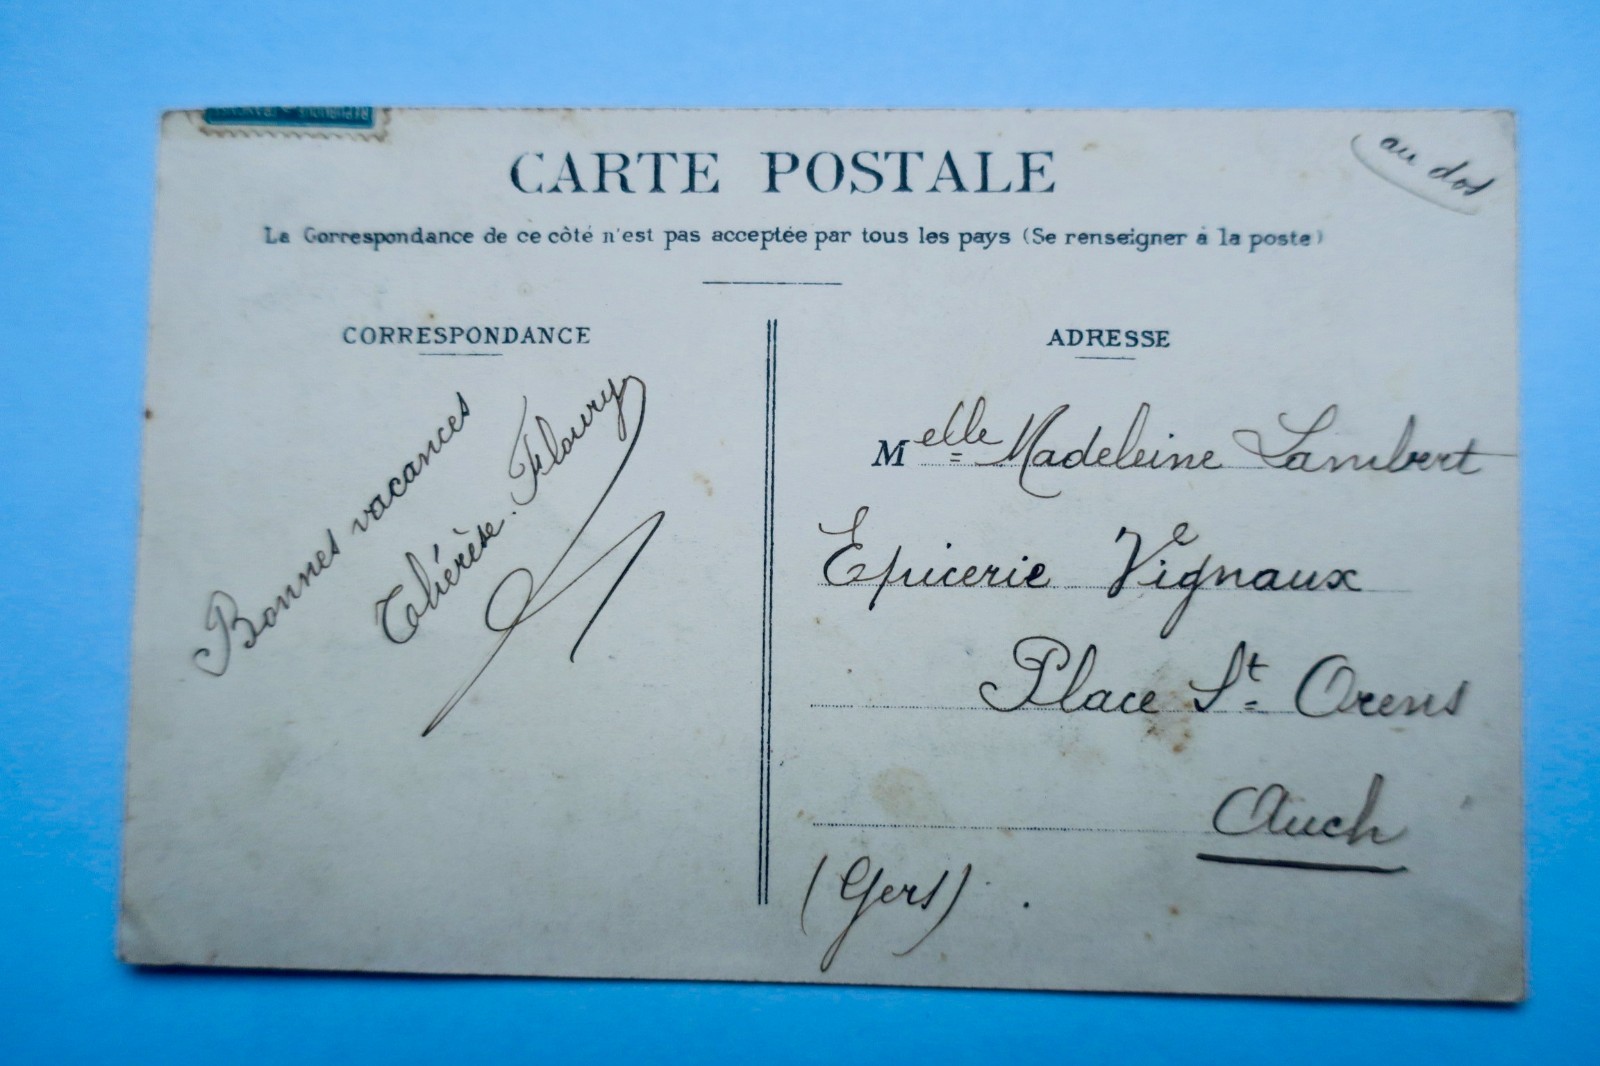 CARTE POSTALE
au dos
La Correspondance de ce côté n'est pas acceptée par tous les pays (Se renseigner à la poste)
CORRESPONDANCE
Bonnes vacances
Thérèse Floury
ADRESSE
Melle Madeleine Lambert
Epicerie Vignaux
Place St Orens
Auch
(Gers).